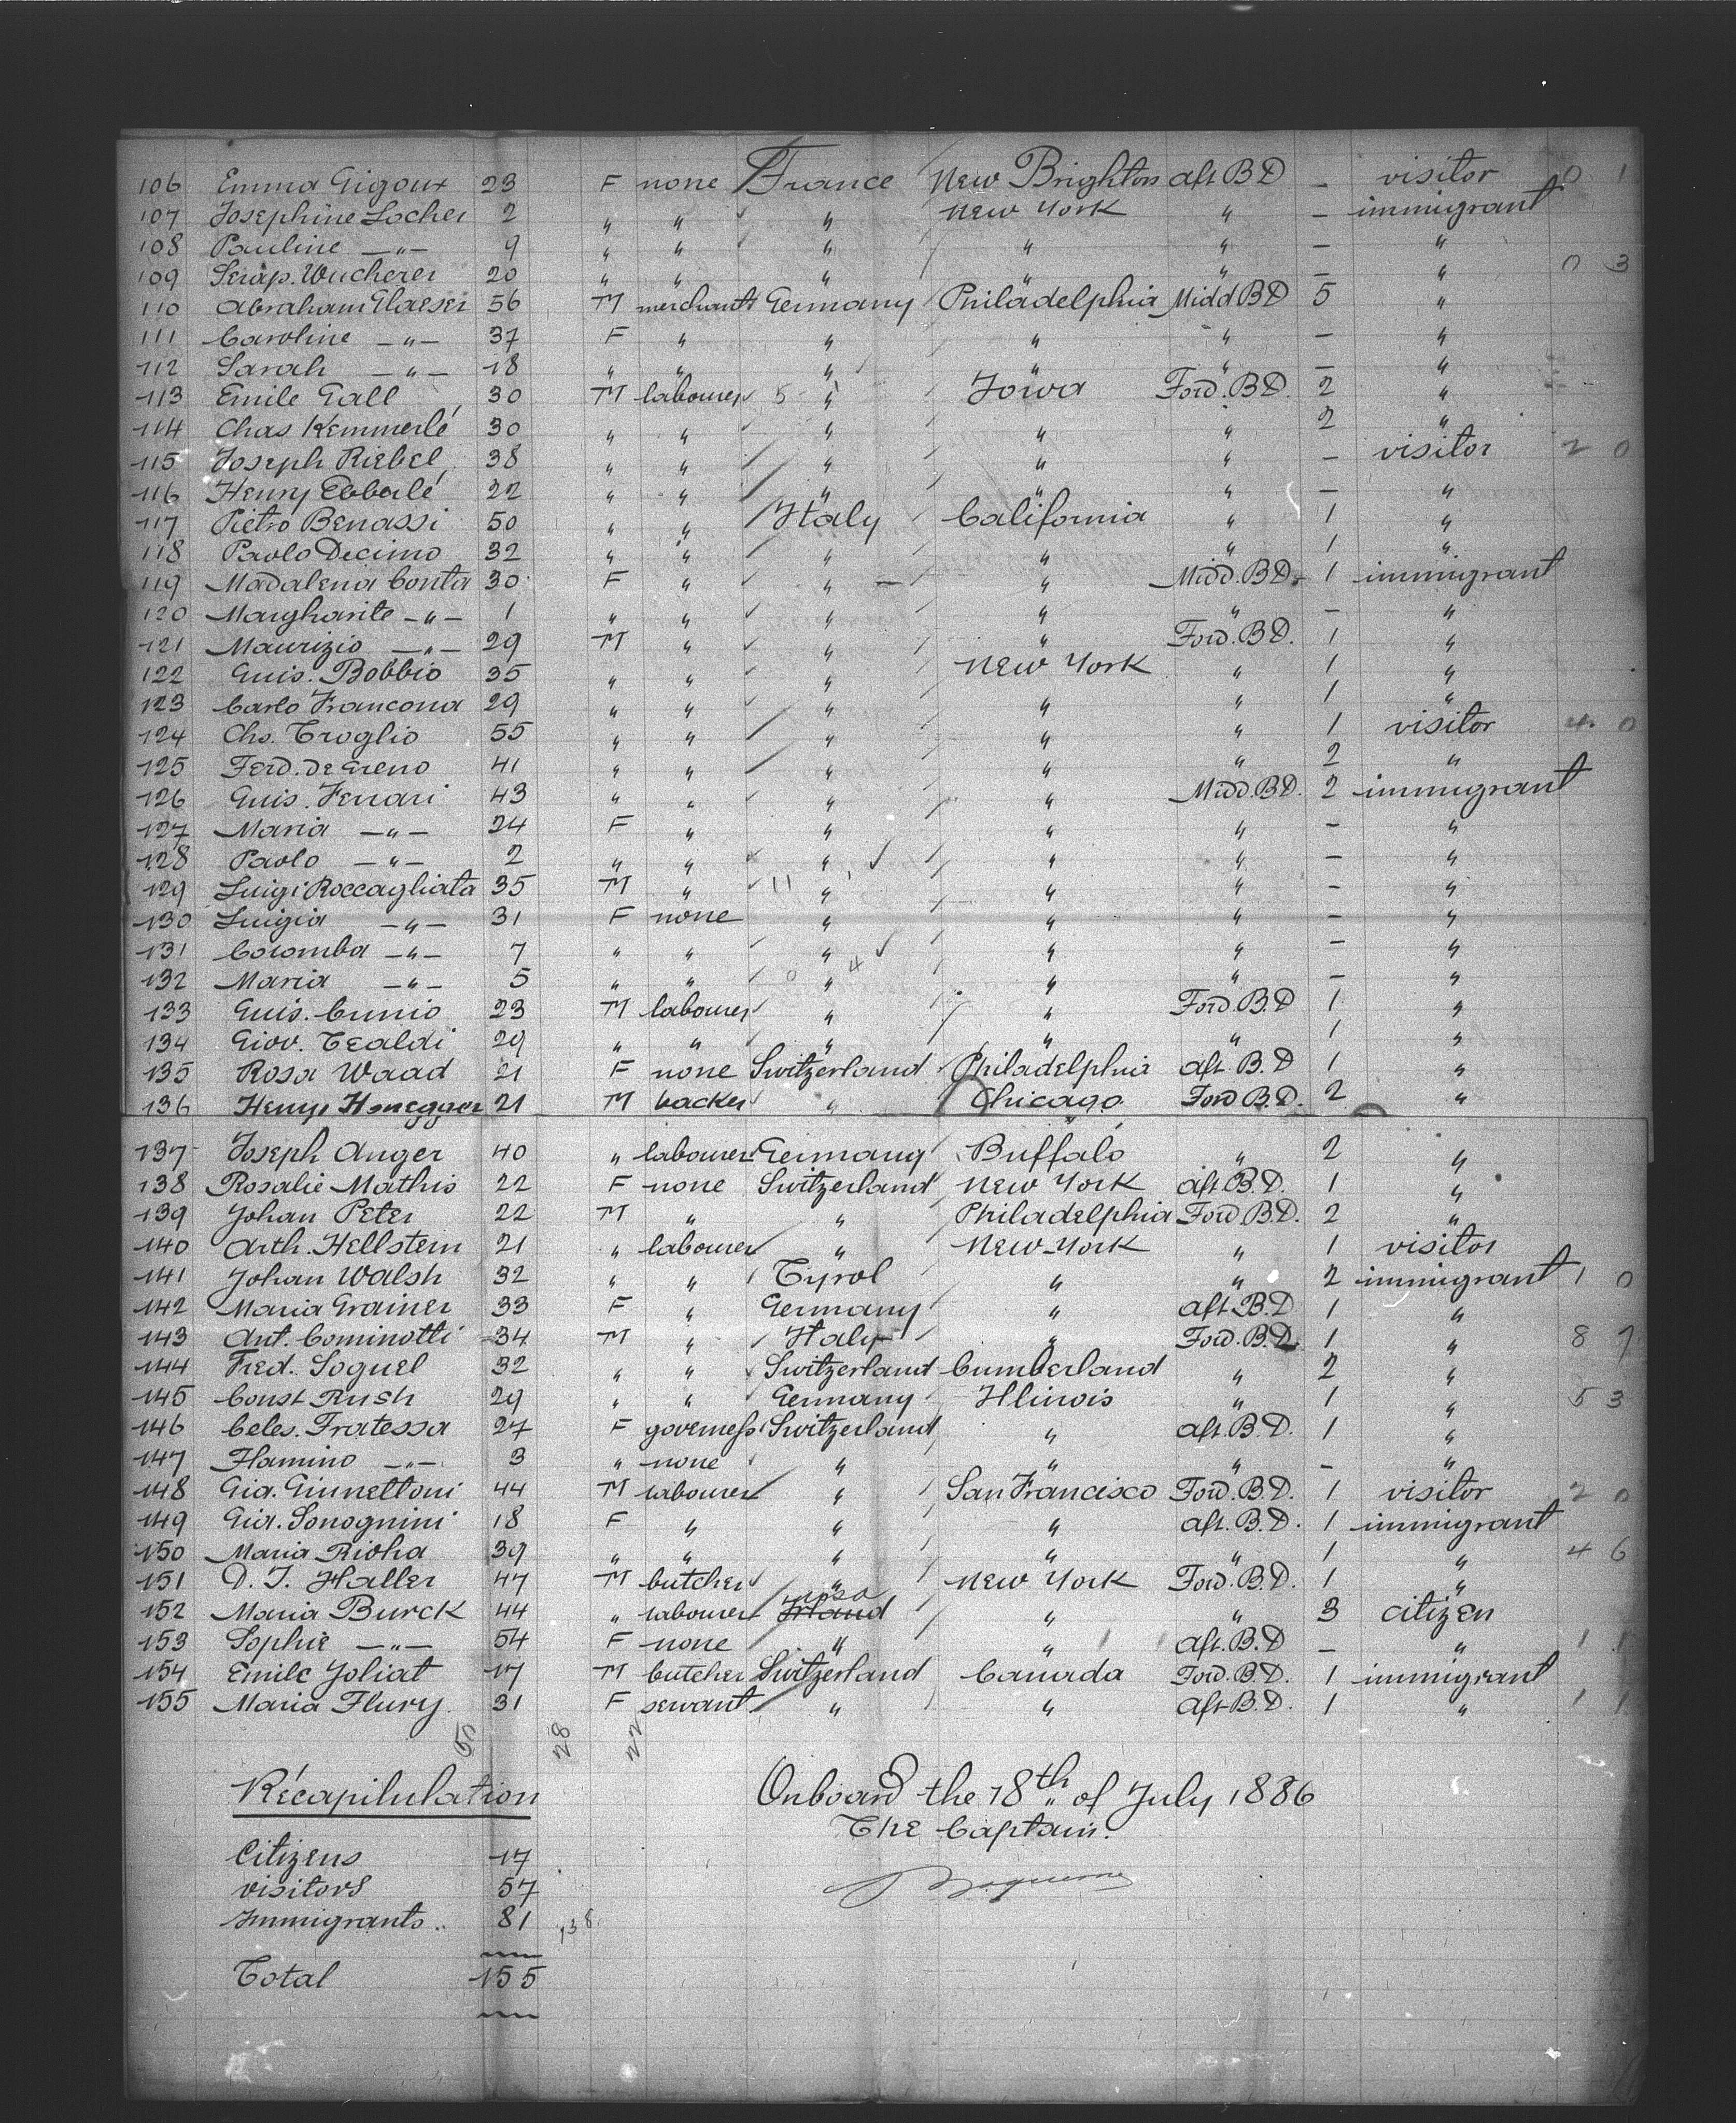 106 Emma Gigoux 23 F none France New Brighton aft BD - visitor 0 1
107 Josephine Locher 2 " " " New York " - immigrant
108 Pauline -"- 9 " " " " " - "
109 Serap. Wucherer 20 " " " " " - " 0 3
110 Abraham Glaeser 56 M merchant Germany Philadelphia Midd BD 5 "
111 Caroline -"- 37 F " " " " - "
112 Sarah -"- 18 " " " " " - "
113 Emile Gall 30 M labourer 5 " Iowa Ford. BD. 2 "
114 Chas Kemmerlé 30 " " " " " 2 "
115 Joseph Riebel 38 " " " " " - visitor 2 0
116 Henry Ebbarlé 22 " " " " " - "
117 Pietro Benassi 50 " " Italy California " 1 "
118 Paolo Decimo 32 " " " " " 1 "
119 Madalena Conta 30 F " " - " Midd. BD. 1 immigrant
120 Margharite -"- 1 " " " " " - "
121 Maurizio -"- 29 M " " " Ford. BD. 1 "
122 Guis. Bobbio 35 " " " New York " 1 "
123 Carlo Francona 29 " " " " " 1 "
124 Chs. Troglio 55 " " " " " 1 visitor 4 0
125 Ferd. de Greno 41 " " " " " 2 "
126 Guis. Ferrari 43 " " " " Midd. BD. 2 immigrant
127 Maria -"- 24 F " " " " - "
128 Paolo -"- 2 " " " " " - "
129 Luigi Roccagliata 35 M " 11 " " " - "
130 Luigia -"- 31 F none " " " - "
131 Colomba -"- 7 " " " " " - "
132 Maria -"- 5 " " 0 " 4 " " - "
133 Guis. Cunio 23 M labourer " " Ford. B.D 1 "
134 Giov. Tealdi 29 " " " " " 1 "
135 Rosa Waad 21 F none Switzerland Philadelphia aft. B.D 1 "
136 Henyi Honegger 21 M backer " Chicago Ford B.D. 2 "
137 Joseph Auger 40 " labourer Germany Buffalo " 2 "
138 Rosalie Mathis 22 F none Switzerland New York aft. B.D. 1 "
139 Johan Peter 22 M " " Philadelphia Ford B.D. 2 "
140 Arth. Hellstern 21 " labourer " New-York " 1 visitor
141 Johan Walsh 32 " " Tyrol " " 2 immigrant 1 0
142 Maria Grainer 33 F " Germany " aft B.D 1 "
143 Ant. Cominotti 34 M " Italy " Ford. B.D. 1 " 8 7
144 Fred. Soguel 32 " " Switzerland Cumberland " 2 "
145 Const Rush 29 " " Germany Illinois " 1 " 5 3
146 Celes. Fratessa 27 F governess Switzerland " aft. B.D. 1 "
147 Flamino -"- 3 " none " " " - "
148 Gia. Giunettoni 44 M labourer " San Francisco Ford. B.D. 1 visitor 2 0
149 Gia. Sonognini 18 F " " " aft. B.D. 1 immigrant
150 Maria Rioha 39 " " " " " 1 " 4 6
151 D. J. Haller 47 M butcher " New York Ford. B.D. 1 "
152 Maria Burck 44 " labourer usa " " 3 citizen
153 Sophie -"- 54 F none " " aft. B.D - " 1 1
154 Emile Joliat 17 M butcher Switzerland Canada Ford. B.D. 1 immigrant
155 Maria Flury 31 F servant " " aft B.D. 1 " 1 1
50 28 22
Récapitulation
Onboard the 18th of July 1886
The Captain.
Citizens 17
visitors 57
Immigrants .. 81 138
Total 155